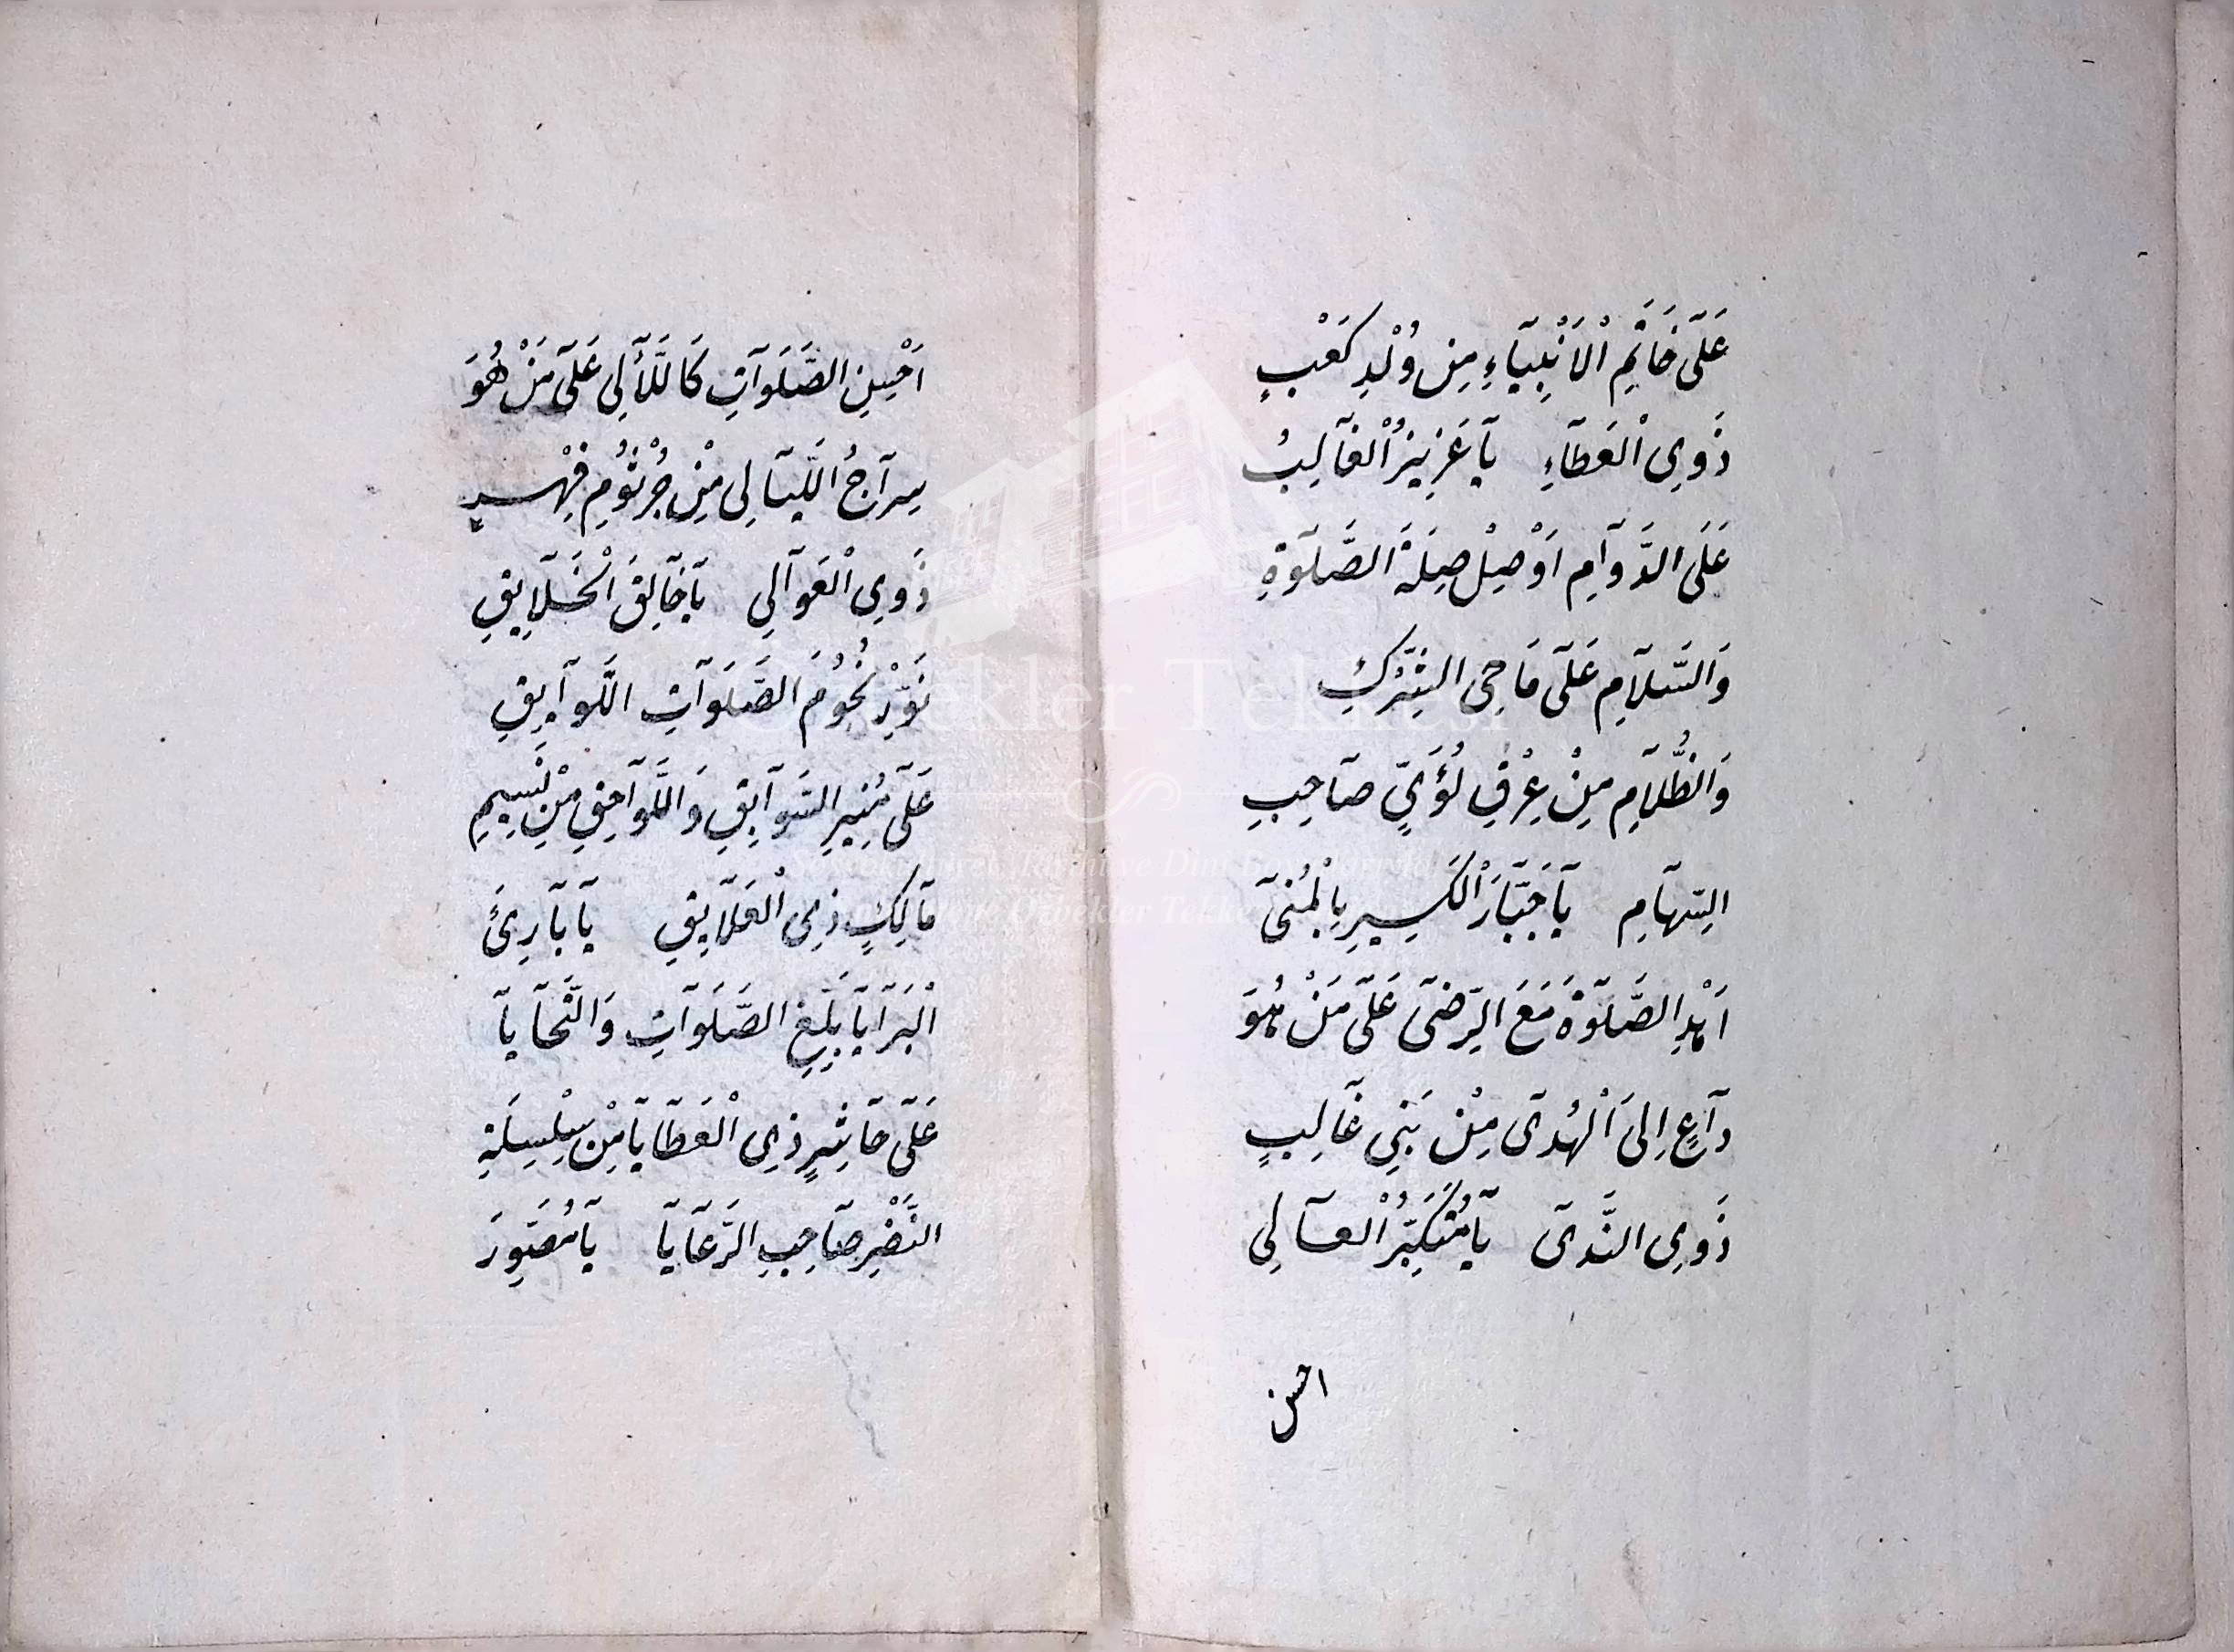 عَلَى خَاتَمِ الْاَنْبِيَآءِ مِنْ وُلْدِ كَعْبٍ
ذَوِى الْعَطَآءِ يَا عَزِيزُ الْغَالِبُ
عَلَى الدَّوَآمِ اَوْصِلْ صِلَةَ الصَّلَوٰةِ
وَالسَّلَامِ عَلَى مَاحِى الشِّرْكِ
وَالظُّلَامِ مِنْ عِرْقِ لُؤَيٍّ صَاحِبِ
السِّهَامِ يَا جَبَّارَ الْكَسِيرِ بِالْمُنَى
اَهْدِ الصَّلَوٰةَ مَعَ الرِّضَى عَلَى مَنْ هُوَ
دَاعٍ اِلَى الْهُدَى مِنْ بَنِى غَالِبٍ
ذَوِى النَّدَى يَا مُتَكَبِّرُ الْعَالِى
احسن
اَحْسِنِ الصَّلَوَاتِ كَاللَّأَلِى عَلَى مَنْ هُوَ
سِرَاجُ اللَّيَالِى مِنْ جُرْثُومِ فِهْرٍ
ذَوِى الْعَوَالِى يَا خَالِقَ الْخَلَايِقِ
نَوِّرْ نُجُومَ الصَّلَوَاتِ اللَّوَايِقِ
عَلَى مُنِيرِ السَّوَابِقِ وَاللَّوَاحِقِ مِنْ نَسِيمِ
مَالِكٍ ذِى الْعَلَايِقِ يَا بَارِئَ
الْبَرَايَا بَلِّغِ الصَّلَوَاتِ وَالتَّحَايَا
عَلَى حَاشِرٍ ذِى الْعَطَايَا مِنْ سِلْسِلَةِ
النَّضْرِ صَاحِبِ الرَّعَايَا يَا مُصَوِّرَ